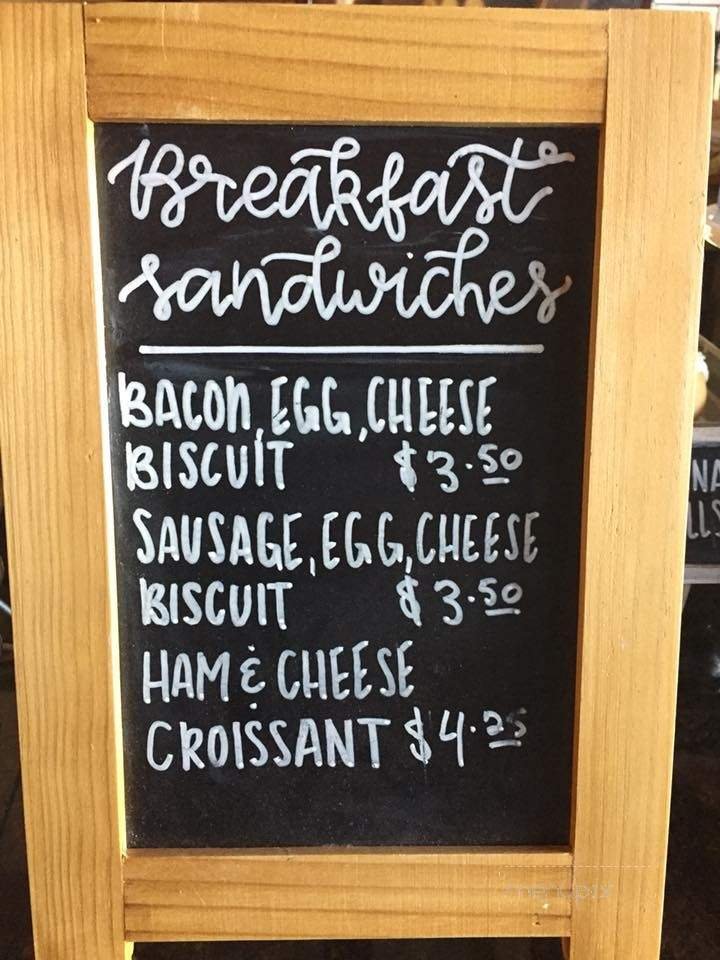 Breakfast
sandwiches
BACON, EGG, CHEESE
BISCUIT $3.50
SAUSAGE, EGG, CHEESE
BISCUIT $3.50
HAM & CHEESE
CROISSANT $4.25
menupix